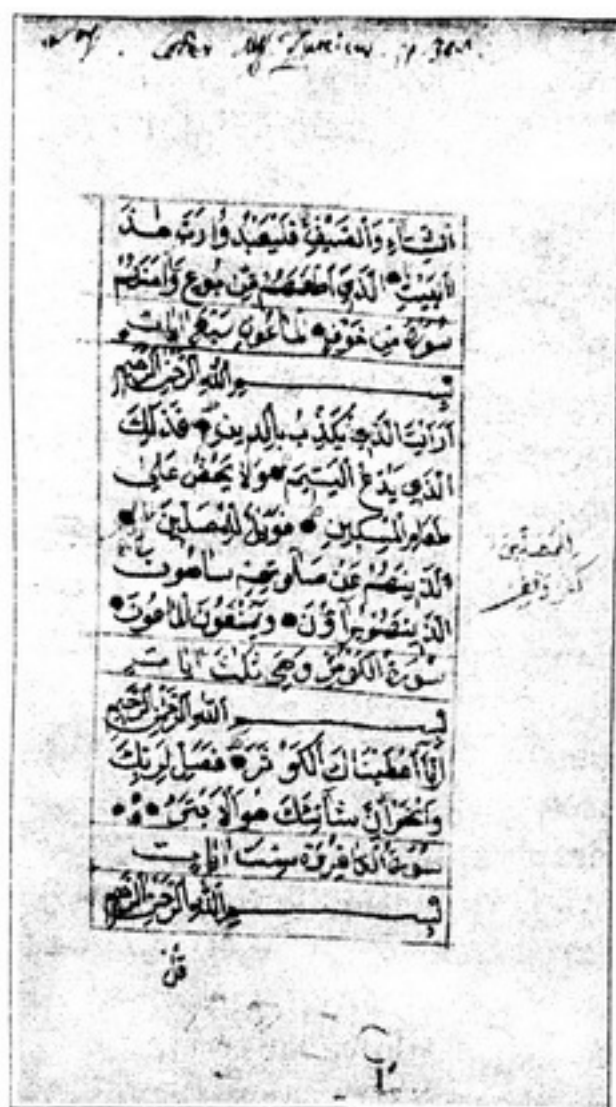 الشتاء والصيف فليعبدوا رب هذا
البيت الذي أطعمهم من جوع وآمنهم
سورة من خوف الماعون سبع ايات
بسم الله الرحمن الرحيم
أرأيت الذي يكذب بالدين فذلك
الذي يدع اليتيم ولا يحض على
طعام المسكين فويل للمصلين
الذينهم عن صلوتهم ساهون
الذينهم يراؤن ويمنعون الماعون
سورة الكوثر وهي ثلث ايات
بسم الله الرحمن الرحيم
إنا أعطيناك الكوثر فصل لربك
وانحر إن شانئك هو الابتر
سورة الكافرون ست ايات
بسم الله الرحمن الرحيم
قل